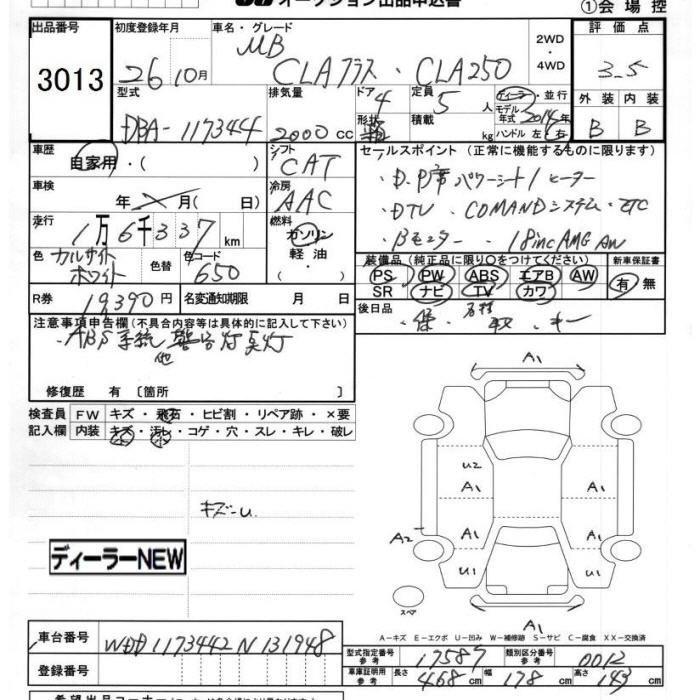 オークション出品申込書
①会場控
出品番号 初度登録年月 車名・グレード 2WD ・4WD 評価点
3013 26 10月 MB CLAクラス・CLA250 3.5
型式 排気量 ドア 4 定員 5人 ディーラー・並行 モデル年式 2014年 外装 内装
DBA-117344 2000cc 形状 積載 kg ハンドル 左・右 B B
車歴 シフト セールスポイント (正常に機能するものに限ります)
自家用・( ) CAT
・D.P席パワーシート/ヒーター
車検 年 月( 日) 冷房 AAC
・DTV ・COMANDシステム・ETC
走行 1万6千337km 燃料 ガソリン 軽油
・Bモニター ・18inc AMG AW
色 カルサイトホワイト 色替 色コード 650
装備品 (純正品に限り○をつけてください) 新車保証書
PS PW ABS エアB AW 有・無
SR ナビ TV カワ
R券 19,390円 名変通知期限 月 日
後日品 ・保 ・取 ・キー
注意事項申告欄 (不具合内容等は具体的に記入して下さい)
・ABS系統 他 警告灯点灯
修復歴 有 〔箇所
検査員記入欄 FW キズ・飛石・ヒビ割・リペア跡・×要
内装 キズ・汚レ・コゲ・穴・スレ・キレ・破レ
A1
U2 A1
A1 A1
A2 A1 A1
U1 U1
スペア
A1
キズーU.
ディーラーNEW
A－キズ E－エクボ U－凹み W－補修跡 S－サビ C－腐食 XX－交換済
車台番号 WDD1173442N131948
型式指定番号 参考 17587 類別区分番号 参考 0012
登録番号
車庫証明用 参考 長さ 468cm 幅 178cm 高さ 143cm